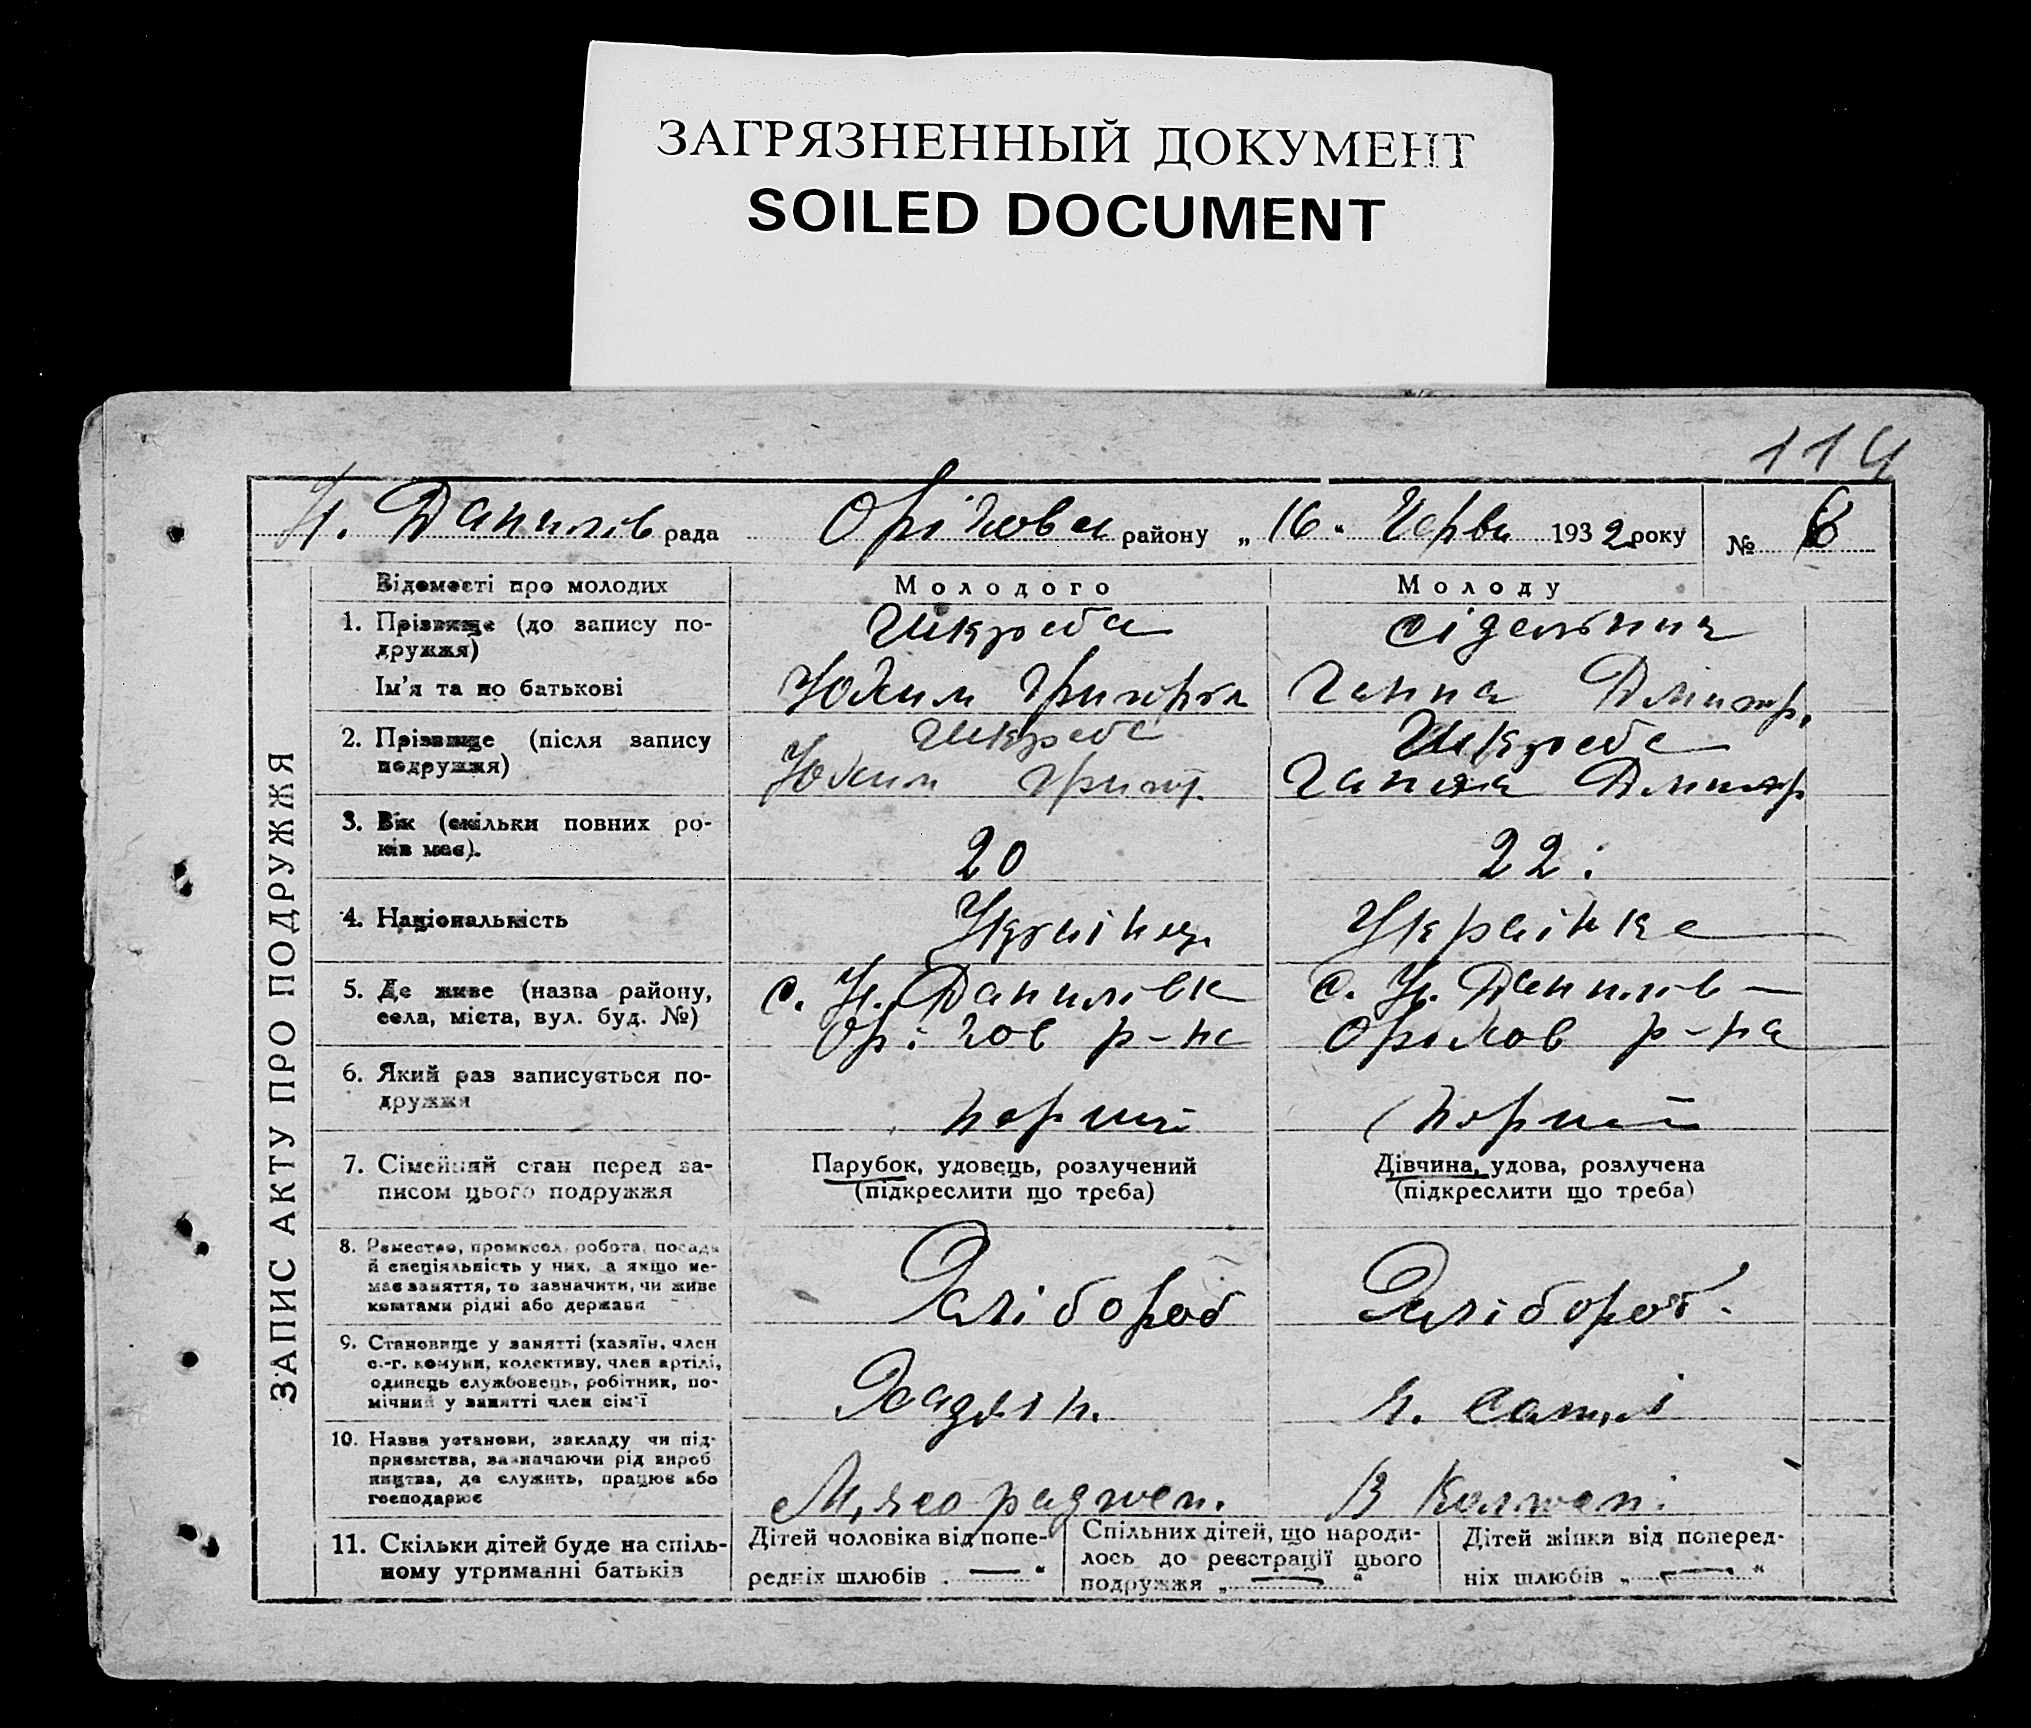 ЗАГРЯЗНЕННЫЙ ДОКУМЕНТ
SOILED DOCUMENT
114
Н. Данилів рада Оріхова району „16“ Червн 1932 року № 6
ЗАПИС АКТУ ПРО ПОДРУЖЖЯ
Відомості про молодих Молодого Молоду
1. Прізвище (до запису по- Шкреба Сідельник
дружжя)
Ім'я та по батькові Юхим Григорів Ганна Дмитр.
2. Прізвище (після запису Шкреба Шкреба
подружжя) Юхим Григ. Ганна Дмитр
3. Вік (скільки повних ро- 20 22
ків має).
4. Національність Українец Українка
5. Де живе (назва району, с. Н. Данилівка с. Н. Данилів
села, міста, вул. буд. №) Оріхов р-на Оріхов р-на
6. Який раз записується по- перший перший
дружжя
7. Сімейний стан перед за- Парубок, удовець, розлучений Дівчина, удова, розлучена
писом цього подружжя (підкреслити що треба) (підкреслити що треба)
8. Ремество, промисел, робота, посада
й спеціяльність у них, а якщо не-
має заняття, то зазначити, чи живе
коштами рідні або держави Хлібороб Хлібороб.
9. Становище у занятті (хазяїн, член
с.-г. комуни, колективу, член артілі,
одинець службовець, робітник, по-
мічний у занятті член сім'ї Хазяїн.
10. Назва установи, закладу чи під-
приємства, зазначаючи рід вироб
ництва, де служить, працює або
господарює В
11. Скільки дітей буде на спіль-
ному утриманні батьків
Дітей чоловіка від попе-
редніх шлюбів „ — “
Спільних дітей, що народи-
лось до реєстрації цього
подружжя „ — “
Дітей жінки від поперед-
ніх шлюбів „ — “